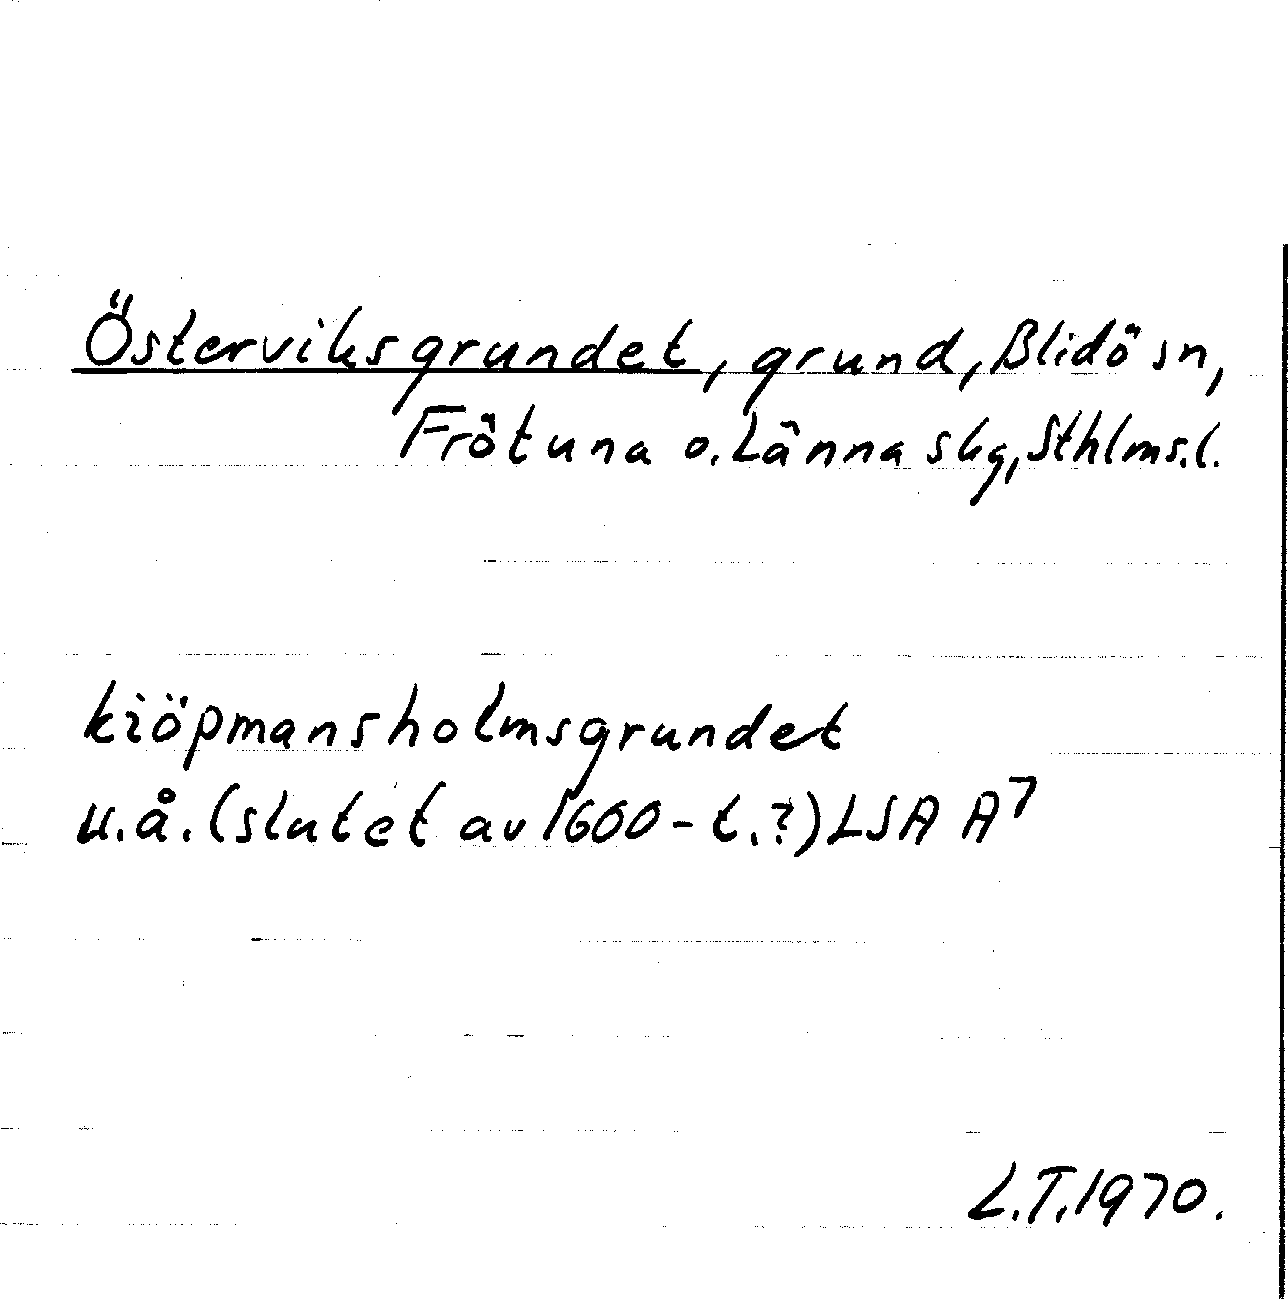 Österviksgrundet, grund, Blidö sn,
Frötuna o. Länna skg, Sthlms.l.
kiöpmansholmsgrundet
u.å. (slutet av 1600-t.?) LSA A7
L.T. 1970.